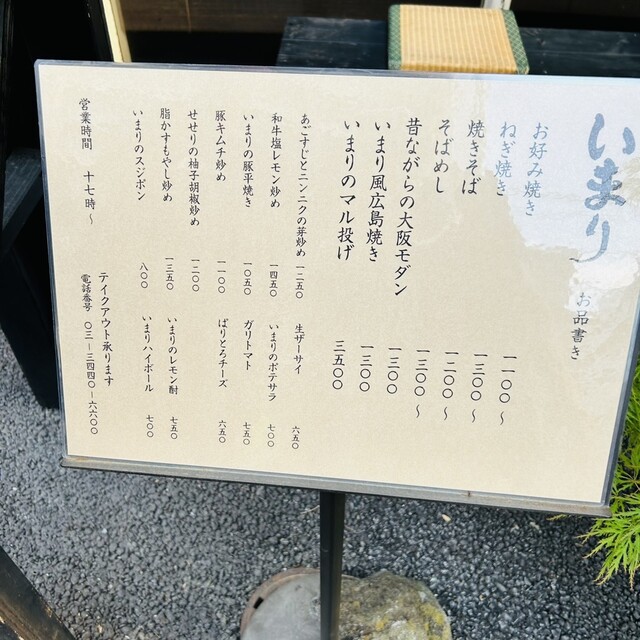 いまり お品書き
お好み焼き 一一〇〇〜
ねぎ焼き 一三〇〇〜
焼きそば 一二〇〇〜
そばめし 一三〇〇〜
昔ながらの大阪モダン 一三〇〇
いまり風広島焼き 一三〇〇
いまりのマル投げ 三五〇〇
あごすじとニンニクの芽炒め 一二五〇
和牛塩レモン炒め 一四五〇
いまりの豚平焼き 一〇五〇
豚キムチ炒め 一一〇〇
せせりの柚子胡椒炒め 一二〇〇
脂かすもやし炒め 一三五〇
いまりのスジポン 八〇〇
生ザーサイ 六五〇
いまりのポテサラ 七〇〇
ガリトマト 七五〇
ぱりとろチーズ 六五〇
いまりのレモン酎 七五〇
いまりハイボール 七〇〇
営業時間 十七時〜
テイクアウト承ります
電話番号 〇三ー三四四〇ー六六〇〇